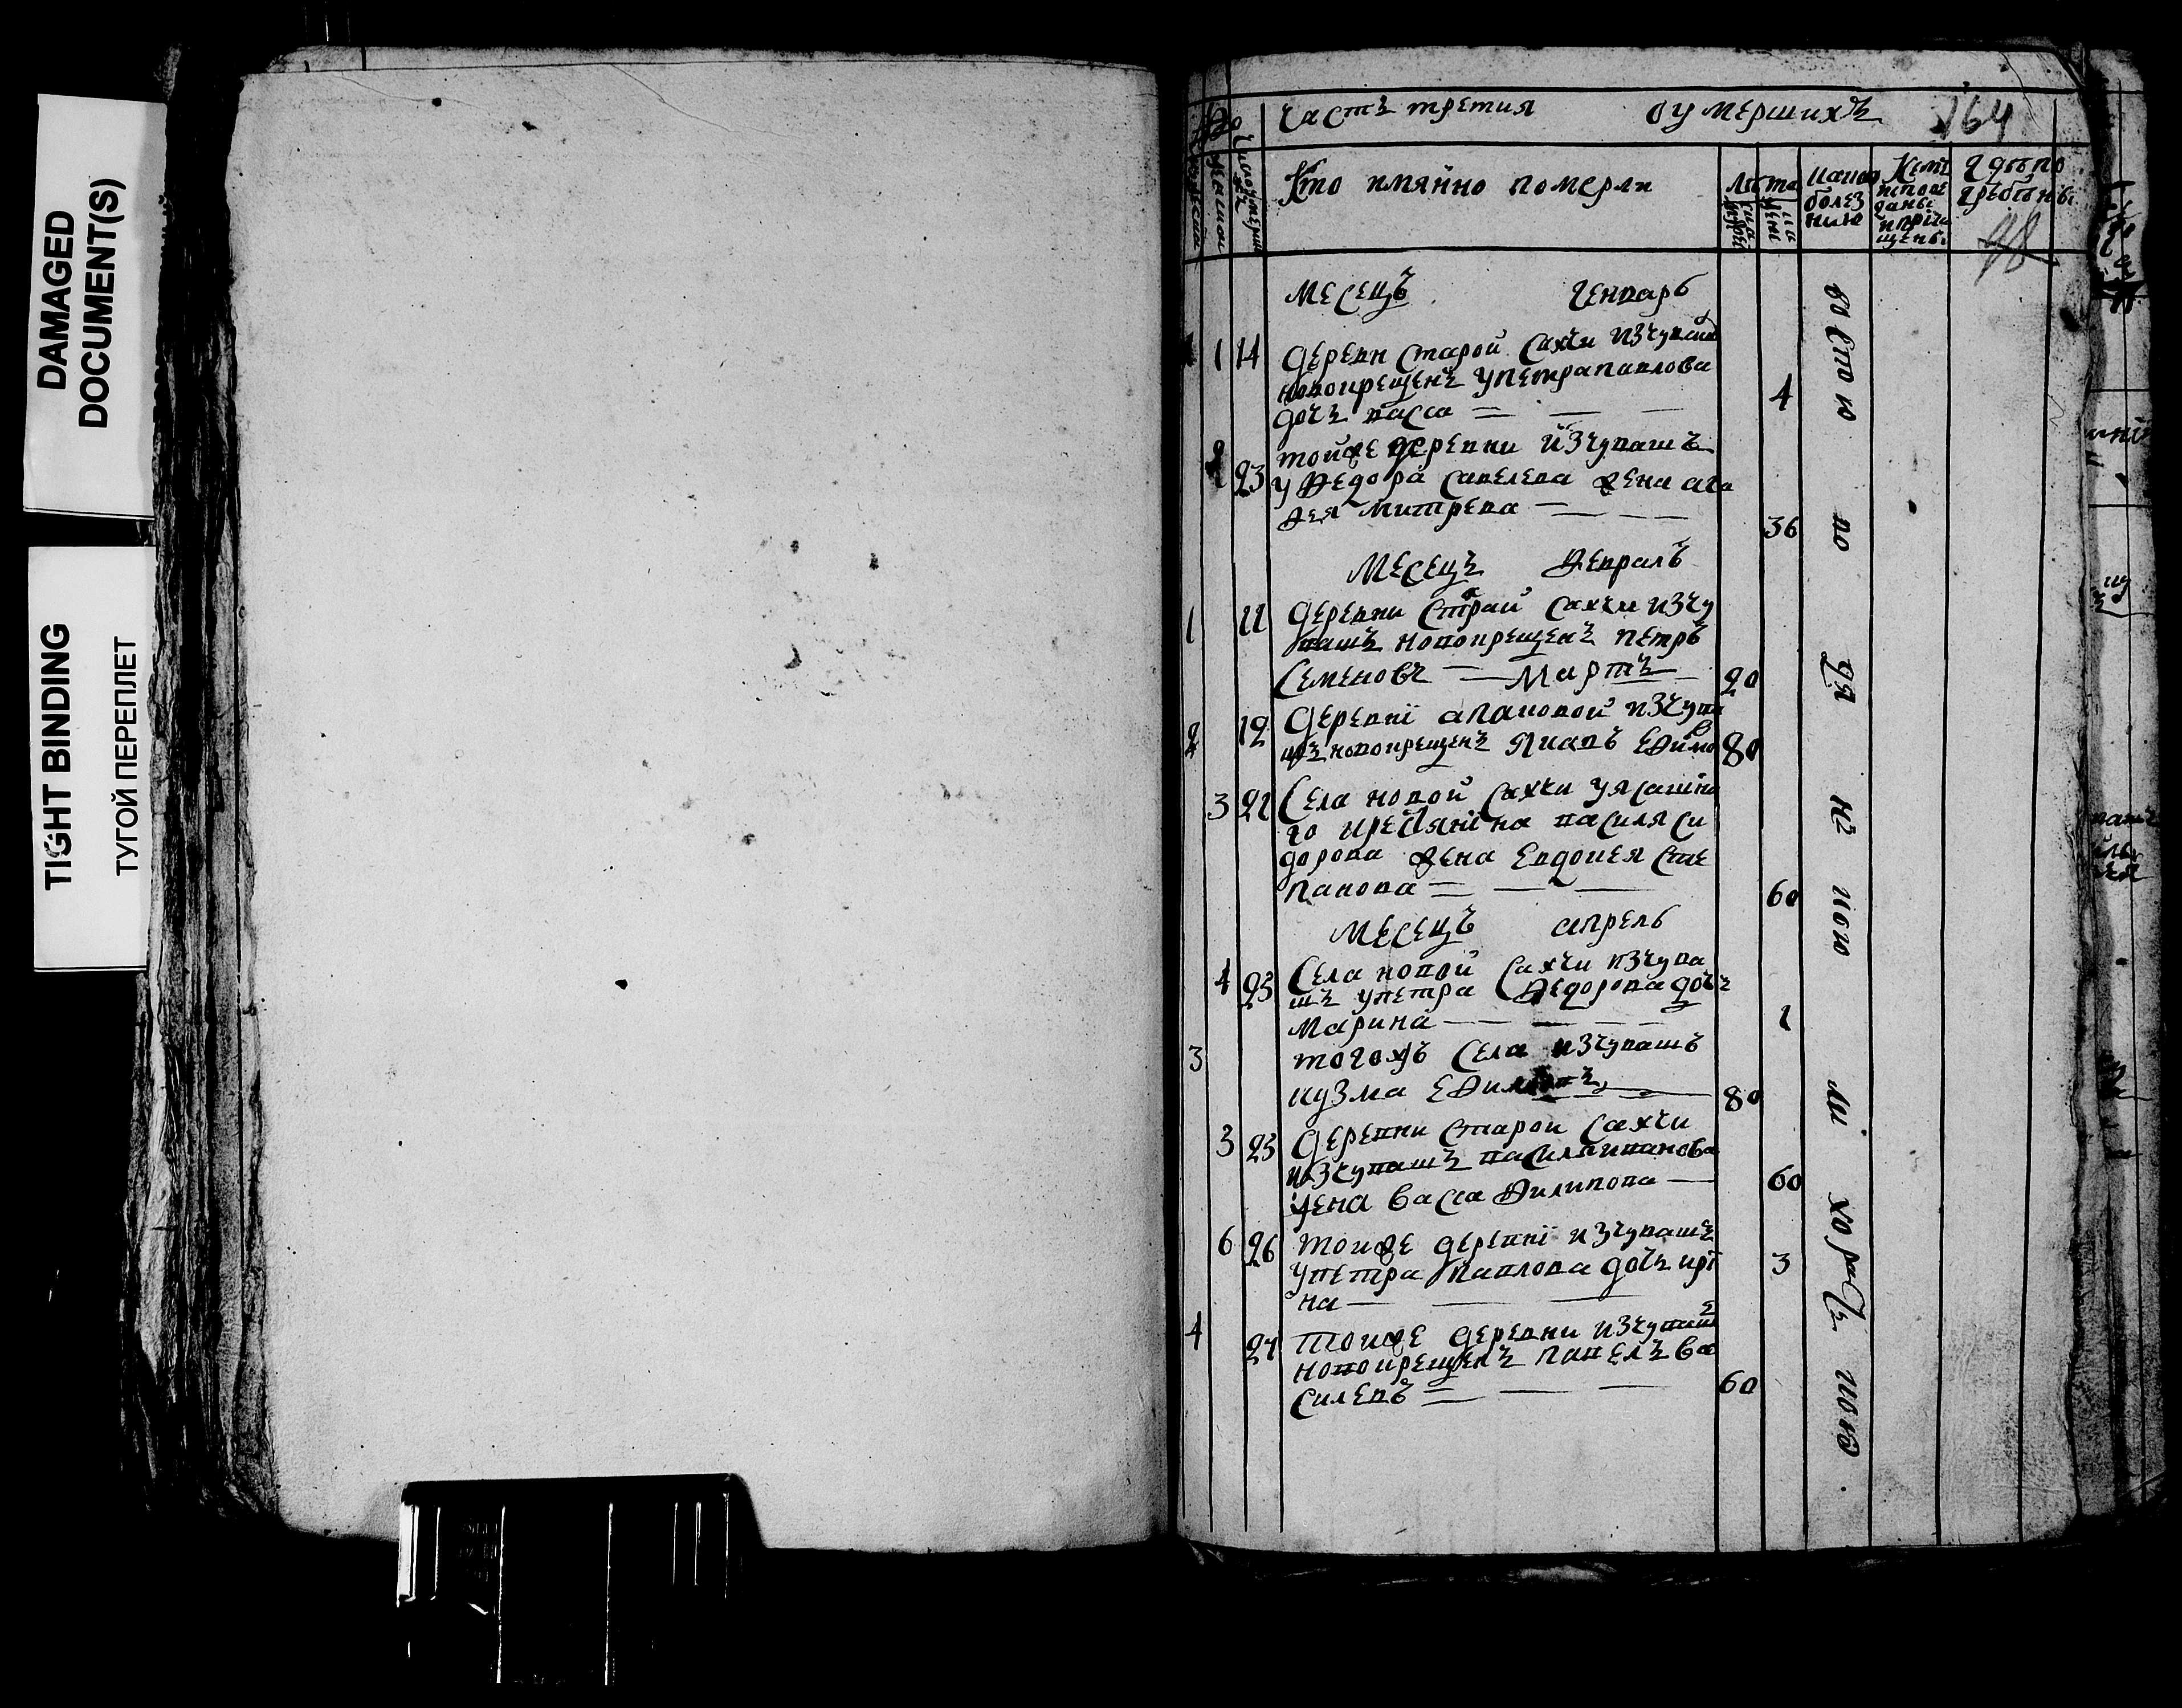 DAMAGED
DOCUMENT(S)
TIGHT BINDING
ТУГОЙ ПЕРЕПЛЕТ
Частъ третия оумершихъ 164
Кто имянно померли
Лета
какою
болез
нию
Кемъ
исповѣ
даны
и прио
щены
Где по
гребены
98
Месецъ Генварь
1 14 Деревни Старой Сахчи изчуваш
новокрещенъ уПетра Павлова
дочь васса 4
2 23 тойже деревни изчувашъ
у Федора Савелева жена ага
фея митрева 36
Месецъ Февралъ
1 11 Деревни Страй Сахчи изчу
вашъ новокрещенъ петръ
Семеновъ Мартъ 20
2 12 Деревнї алановой изчува
шъ новокрещенъ Якавъ Ефимовъ 80
3 21 Села новой Сахчи уясашна
го кресьянїна василя си
дорова жена Евдокея Сте
панова 60
Месецъ апрель
4 23 Села новой Сахчи изчува
шъ упетра Федорова дочь
Марина 1
3 тогожъ Села изчувашъ
кузма Ефимовъ 80
3 23 Деревни Старои Сахчи
изчувашъ василя иванова
жена васса Филипова 60
6 26 тоиже деревнї изчувашъ
упетра павлова дочь ирї
на 3
4 27 тоиже деревни изчувашъ
новокрещенъ павелъ ва
силевъ 60
воспою
во
дя
нъ
кою
ли
хораД
кою